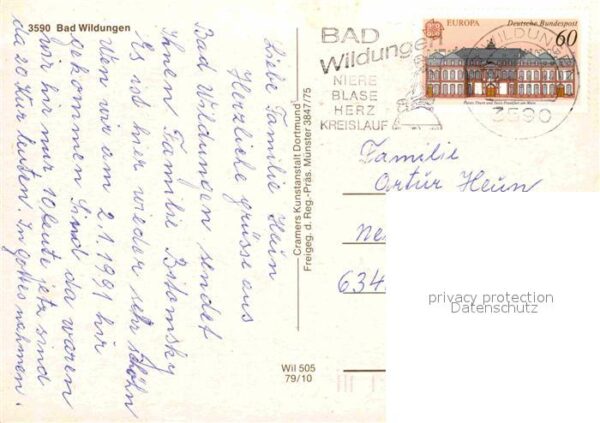 3590 Bad Wildungen
Liebe Familie Hein
Herzliche grüsse aus
Bad Wildungen sendet
Ihnen Familie Bitomsky
Es ist hir wieder sehr schöhn
Wen wir am 2.1.1991 hir
gekommen sind da waren
wir hir nur 10 leute jetz sind
da 20 Kur leuten. In Gottes nahmen.
Cramers Kunstanstalt Dortmund
Freigeg. d. Reg.-Präs. Münster 3847/75
Wil 505
79/10
BAD
Wildungen
NIERE
BLASE
HERZ
KREISLAUF
EUROPA
Deutsche Bundespost
60
Palais Thurn und Taxis Frankfurt am Main
WILDUN
3590
Familie
Artur Heun
Ne
634
privacy protection
Datenschutz